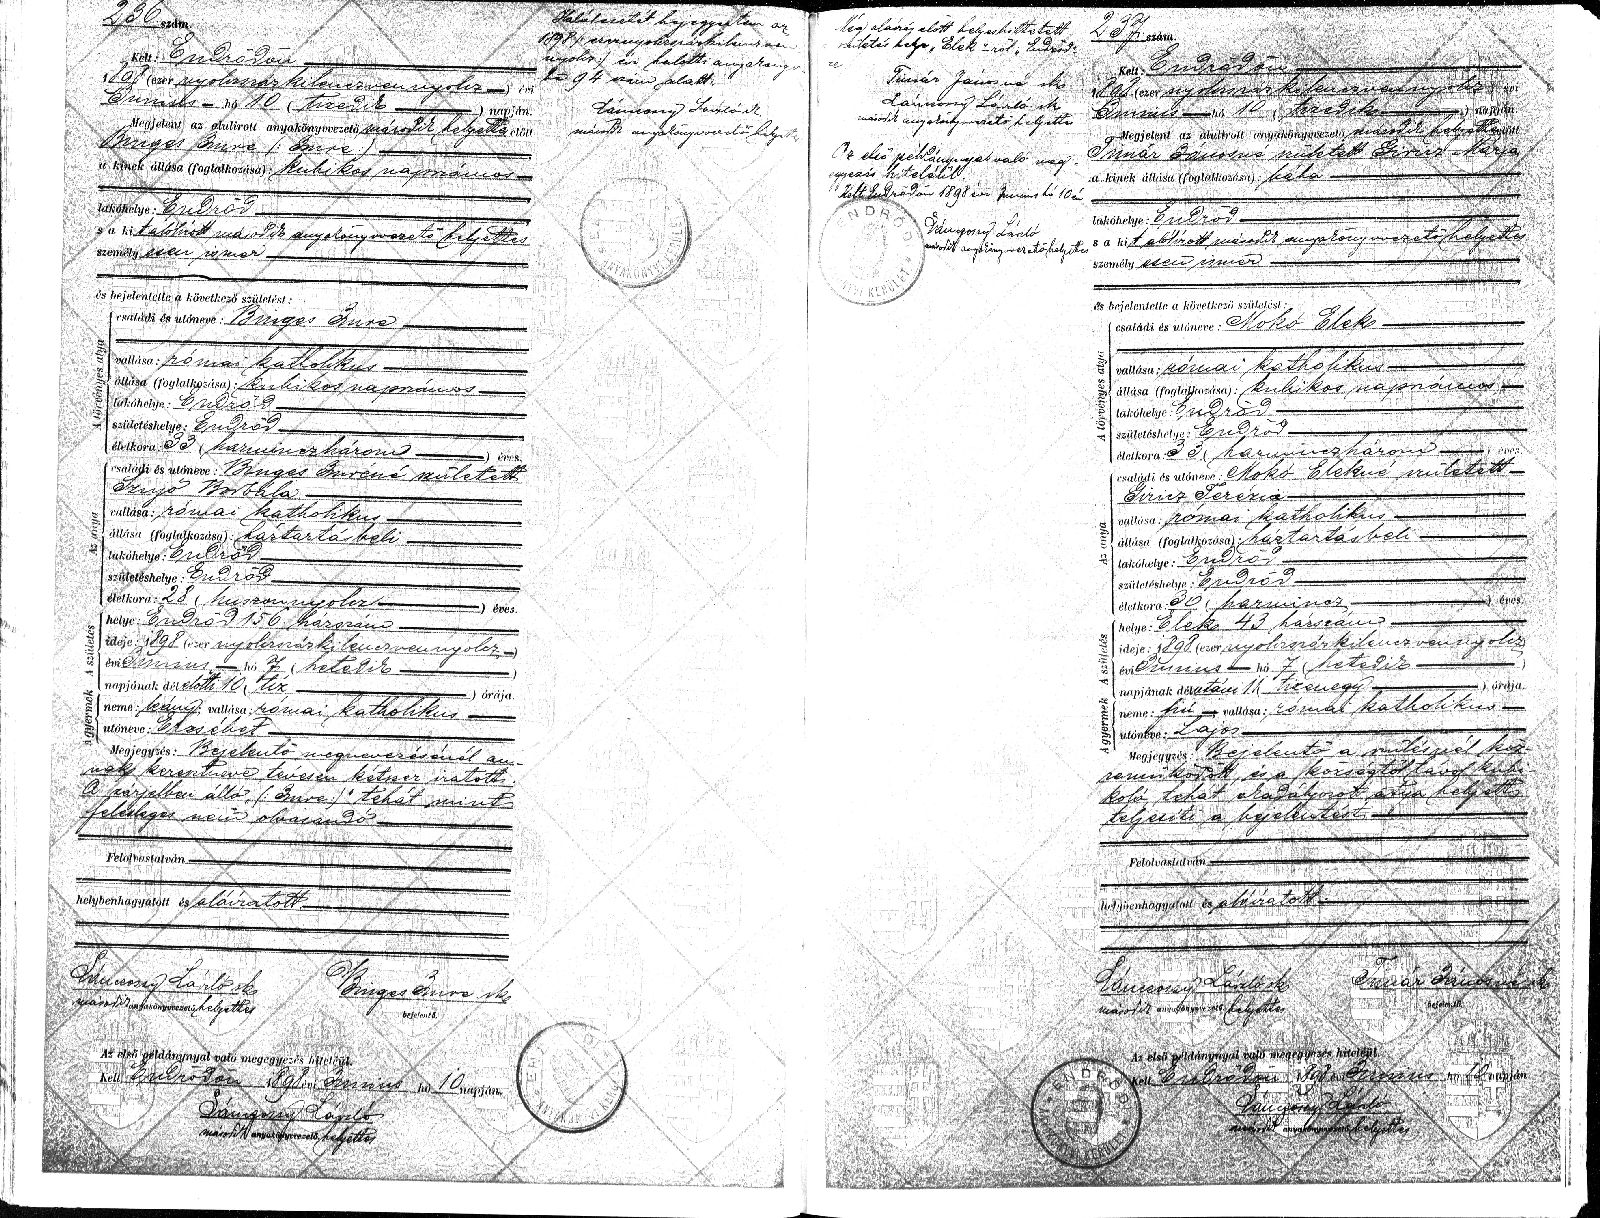 236 szám.
Kelt: Endrődön
1898 (ezer nyolcszázkilenczvennyolcz) évi
Június hó 10 (tizedik) napján.
Megjelent az alulirott anyakönyvvezető második helyettes előtt
Binges Imre (: Imre :)
a kinek állása (foglalkozása): kubikos napszámos
lakóhelye: Endrőd
s a kit alólírott második anyakönyvvezető helyettes
személyesen ismer
és bejelentette a következő születést:
A törvényes atya
családi és utóneve: Binges Imre
vallása: római katholikus
állása (foglalkozása): kubikos napszámos
lakóhelye: Endrőd
születéshelye: Endrőd
életkora: 33 (harminczhárom) éves.
Az anya
családi és utóneve: Binges Imréné született
Szujó Borbála
vallása: római katholikus
állása (foglalkozása): háztartásbeli
lakóhelye: Endrőd
születéshelye: Endrőd
életkora: 28 (huszonnyolcz) éves.
A születés
helye: Endrőd 156 házszám
ideje: 1898 (ezer nyolcszázkilenczvennyolcz)
évi Június hó 7 (hetedik)
napjának délelőtti 10 (tíz) órája.
A gyermek
neme: leány; vallása: római katholikus
utóneve: Erzsébet
Megjegyzés: Bejelentő megnevezésénél an-
nak keresztneve tévesen kétszer iratott.
A zárjelben álló "(: Imre :)" tehát mint
felesleges nem olvasandó
Felolvastatván
helybenhagyatott és aláiratott
Lánczosy László sk
második anyakönyvvezető helyettes
Binges Imre sk
bejelentő.
Az első példánynyal való megegyezés hiteléül.
Kelt Endrődön 1898 évi Június hó 10 napján.
Lánczosy László
második anyakönyvvezető helyettes
Halálesetét bejegyeztem az
1898 (: ezernyolcszázkilenczven
nyolcz :) évi halotti anyakönyv
94 szám alatt.
Lánczosy László sk
második anyakönyvvezető helyettes
Még aláírás előtt helyesbíttetett
születés helye "Elek"-ről "Endrőd"-
re
Tímár Jánosné sk
Lánczosy László sk
második anyakönyvvezető helyettes
Az első példánynyal való meg-
egyezés hiteléül.
Kelt Endrődön 1898 évi Június hó 10 én
Lánczosy László
második anyakönyvvezető helyettes
ENDRŐD
237 szám.
Kelt: Endrődön
1898 (ezer nyolcszázkilenczvennyolcz) évi
Június hó 10 (tizedik) napján.
Megjelent az alulirott anyakönyvvezető második helyettes előtt
Tímár Jánosné született Giricz Mária
a kinek állása (foglalkozása): bába
lakóhelye: Endrőd
s a kit alólírott második anyakönyvvezető helyettes
személyesen ismer
és bejelentette a következő születést:
A törvényes atya
családi és utóneve: Mokó Elek
vallása: római katholikus
állása (foglalkozása): kubikos napszámos
lakóhelye: Endrőd
születéshelye: Endrőd
életkora: 33 (harminczhárom) éves.
Az anya
családi és utóneve: Mokó Elekné született
Giricz Terézia
vallása: római katholikus
állása (foglalkozása): háztartásbeli
lakóhelye: Endrőd
születéshelye: Endrőd
életkora: 30 (harmincz) éves.
A születés
helye: Elek 43 házszám
ideje: 1898 (ezer nyolcszázkilenczvennyolcz)
évi Június hó 7 (hetedik)
napjának délutáni 11 (tizenegy) órája.
A gyermek
neme: fiú; vallása: római katholikus
utóneve: Lajos
Megjegyzés: Bejelentő a szülésnél köz-
reműködött, és a községtől távol kubi-
koló, tehát akadályozott atya helyett
teljesíti a bejelentést.
Felolvastatván
helybenhagyatott és aláiratott.
Lánczosy László sk
második anyakönyvvezető helyettes
Tímár Jánosné sk
bejelentő.
Az első példánynyal való megegyezés hiteléül.
Kelt Endrődön 1898 évi Június hó 10 napján
Lánczosy László
második anyakönyvvezető helyettes
ENDRŐD